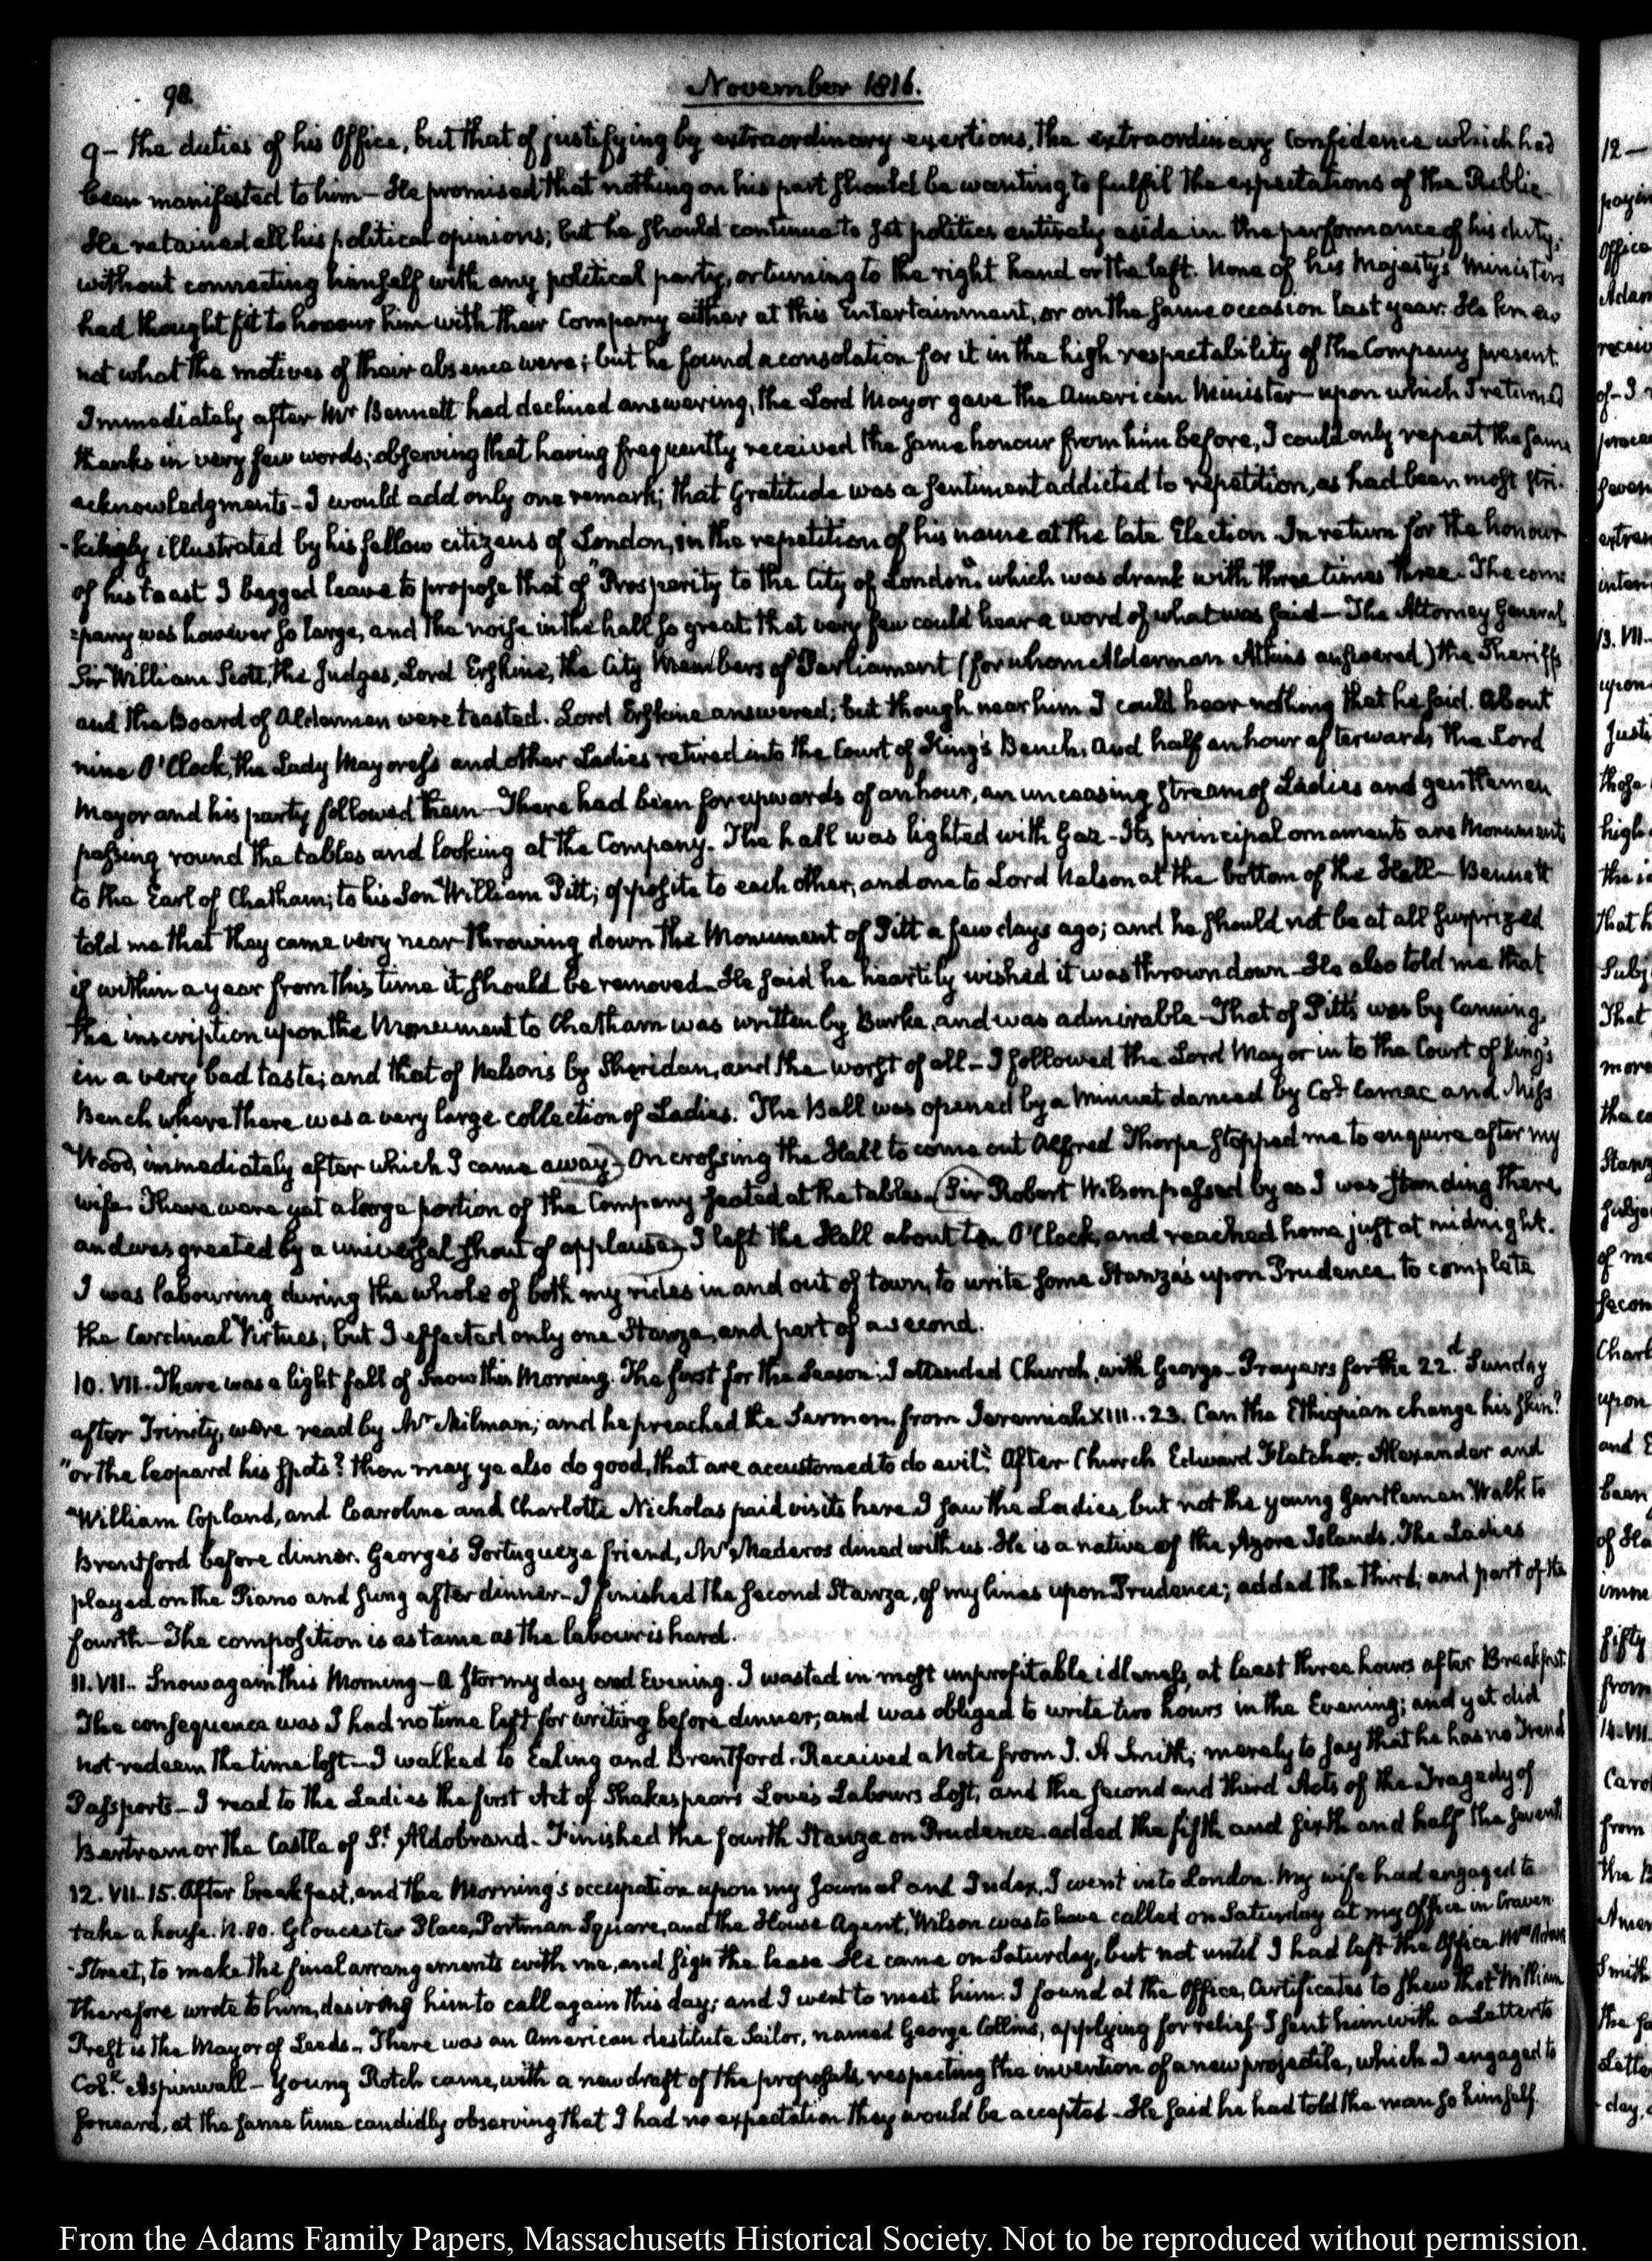 98.
November 1816.
9 - the duties of his Office, but that of justifying by extraordinary exertions, the extraordinary confidence which had
been manifested to him — He promised that nothing on his part should be wanting to fulfil the expectations of the Public.
He retained all his political opinions; but he should continue to set politics entirely aside in the performance of his duty,
without connecting himself with any political party, or turning to the right hand or the left. None of his Majesty's Ministers
had thought fit to honour him with their Company either at this Entertainment, or on the same occasion last year. He knew
not what the motives of their absence were; but he found a consolation for it in the high respectability of the Company present.
Immediately after Mr Bennett had declined answering, the Lord Mayor gave the American Minister — upon which I returned
thanks in very few words; observing that having frequently received the same honour from him before, I could only repeat the same
acknowledgments - I would add only one remark; that Gratitude was a sentiment addicted to repetition, as had been most stri-
-kingly illustrated by his fellow citizens of London, in the repetition of his name at the late Election. In return for the honour
of his toast I begged leave to propose that of "Prosperity to the City of London" which was drank with three times three. The com-
=pany was however so large, and the noise in the hall so great that very few could hear a word of what was said — The Attorney General,
Sir William Scott, the Judges, Lord Erskine, the City Members of Parliament (for whom Alderman Atkins answered) the Sheriffs
and the Board of Aldermen were toasted. Lord Erskine answered; but though near him I could hear nothing that he said. About
nine O'Clock, the Lady Mayoress and other Ladies retired into the Court of King's Bench, and half an hour afterwards the Lord
Mayor and his party followed them — There had been for upwards of an hour, an unceasing stream of Ladies and gentlemen
passing round the tables and looking at the Company. The hall was lighted with Gaz - Its principal ornaments are Monuments
to the Earl of Chatham; to his Son William Pitt; opposite to each other, and one to Lord Nelson at the bottom of the Hall — Bennett
told me that they came very near throwing down the Monument of Pitt a few days ago; and he should not be at all surprized
if within a year from this time it should be removed. He said he heartily wished it was thrown down — He also told me that
the inscription upon the Monument to Chatham was written by Burke, and was admirable — That of Pitt's was by Canning,
in a very bad taste; and that of Nelson's by Sheridan, and the worst of all — I followed the Lord Mayor in to the Court of King's
Bench where there was a very large collection of Ladies. The Ball was opened by a Minuet danced by Col. Camac and Miss
Wood, immediately after which I came away — On crossing the Hall to come out Alfred Thorpe stopped me to enquire after my
wife. There were yet a large portion of the Company seated at the tables. Sir Robert Wilson passed by as I was standing there,
and was greeted by a universal shout of applause. I left the Hall about ten O'Clock, and reached home just at midnight.
I was labouring during the whole of both my rides in and out of town, to write some Stanza's upon Prudence, to complete
the Cardinal Virtues; but I effected only one Stanza, and part of a second.
10. VII. There was a light fall of Snow this Morning. The first for the Season. I attended Church, with George — Prayers for the 22d. Sunday
after Trinity, were read by Mr Milman; and he preached the Sermon from Jeremiah XIII..23. Can the Ethiopian change his skin?
"or the leopard his spots? then may ye also do good, that are accustomed to do evil." After Church Edward Fletcher, Alexander and
William Copland, and Caroline and Charlotte Nicholas paid visits here. I saw the Ladies, but not the young Gentlemen. Walk to
Brentford before dinner. George's Portugueze friend, Mr Maderos dined with us. He is a native of the Azore Islands. The Ladies
played on the Piano and sung after dinner — I finished the second Stanza, of my lines upon Prudence; added the third; and part of the
fourth — The composition is as tame as the labour is hard.
11. VII.. Snow again this Morning — A stormy day and Evening. I wasted in most unprofitable idleness, at least three hours after Breakfast.
The consequence was I had no time left for writing before dinner; and was obliged to write two hours in the Evening; and yet did
not redeem the time lost — I walked to Ealing and Brentford. Received a Note from J. A Smith; merely to say that he has no
Passports — I read to the Ladies the first Act of Shakespear's Love's Labours Lost, and the second and third Acts of the Tragedy of
Bertram or the Castle of St. Aldobrand. Finished the fourth Stanza on Prudence. added the fifth and sixth and half the seventh
12. VII.15. After breakfast, and the Morning's occupation upon my Journal and Index, I went into London. My wife had engaged to
take a house. N. 80. Gloucester Place, Portman Square, and the House Agent, Wilson was to have called on Saturday at my Office in Craven
-Street, to make the final arrangements with me, and sign the lease. He came on Saturday, but not until I had left the Office. Mrs Adams
therefore wrote to him, desiring him to call again this day; and I went to meet him. I found at the Office, Certificates to shew that William
Prest is the Mayor of Leeds. There was an American destitute Sailor, named George Collins, applying for relief. I sent him with a Letter to
Col. Aspinwall — Young Rotch came, with a new draft of the proposals respecting the invention of a new projectile, which I engaged to
forward, at the same time candidly observing that I had no expectation they would be accepted. He said he had told the man so himself.
From the Adams Family Papers, Massachusetts Historical Society. Not to be reproduced without permission.